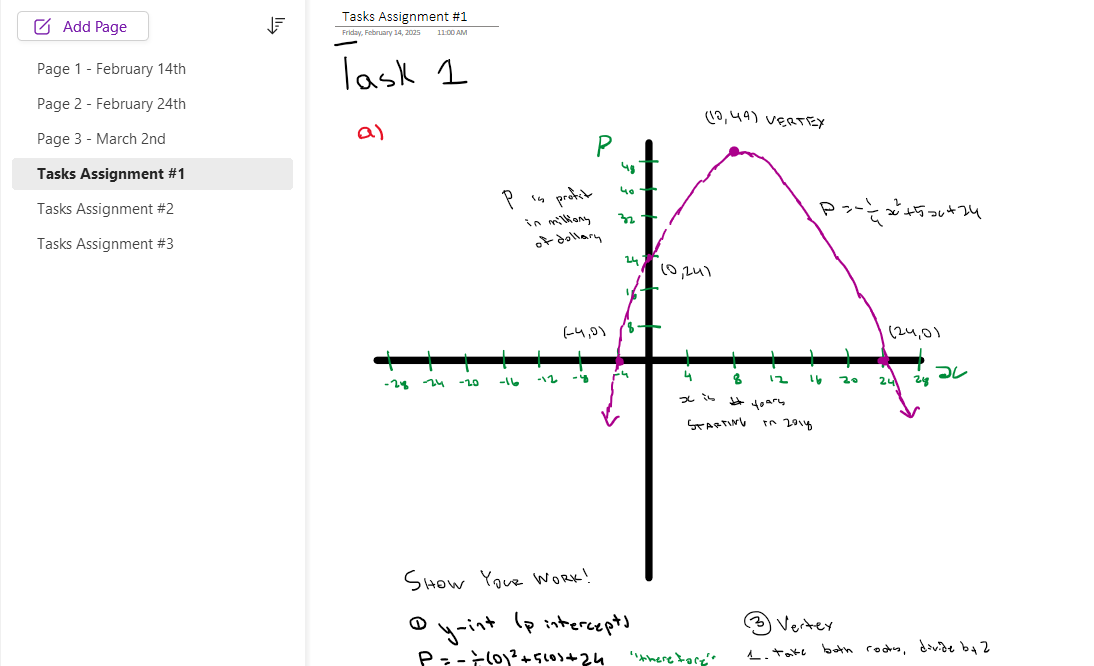 Add Page
Page 1 - February 14th
Page 2 - February 24th
Page 3 - March 2nd
Tasks Assignment #1
Tasks Assignment #2
Tasks Assignment #3
Tasks Assignment #1
Friday, February 14, 2025 11:00 AM
Task 1
a)
(10,49) VERTEX
P
48
40
32
24
16
8
P is profit
in millions
of dollars
P = -1/4 x² + 5x + 24
(0,24)
(-4,0)
(24,0)
-28 -24 -20 -16 -12 -8 -4 4 8 12 16 20 24 28 x
x is # years
STARTING in 2018
SHOW YOUR WORK!
① y-int (p intercept)
P = -1/4(0)² + 5(0) + 24 "therefore"
③ Vertex
1. take both roots, divide by 2